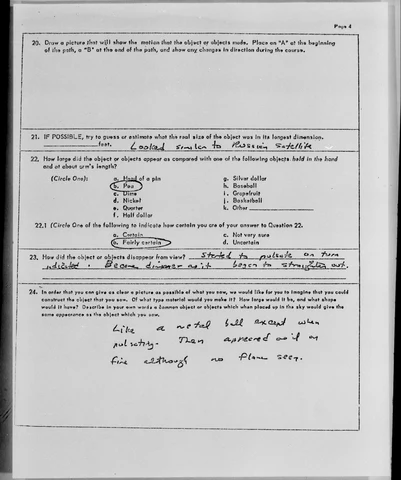 Page 4
20. Draw a picture that will show the motion that the object or objects made. Place an "A" at the beginning
of the path, a "B" at the end of the path, and show any changes in direction during the course.
21. IF POSSIBLE, try to guess or estimate what the real size of the object was in its largest dimension.
feet. Looked similar to Russian Satellite
22. How large did the object or objects appear as compared with one of the following objects held in the hand
and at about arm's length?
(Circle One): a. Head of a pin g. Silver dollar
b. Pea h. Baseball
c. Dime i. Grapefruit
d. Nickel j. Basketball
e. Quarter k. Other
f. Half dollar
22.1 (Circle One of the following to indicate how certain you are of your answer to Question 22.
a. Certain c. Not very sure
b. Fairly certain d. Uncertain
23. How did the object or objects disappear from view? Started to pulsate on turn
indicated. Became dimmer as it began to straighten out.
24. In order that you can give as clear a picture as possible of what you saw, we would like for you to imagine that you could
construct the object that you saw. Of what type material would you make it? How large would it be, and what shape
would it have? Describe in your own words a common object or objects which when placed up in the sky would give the
same appearance as the object which you saw.
Like a metal ball except when
pulsating. Then appeared as if on
fire although no flame seen.